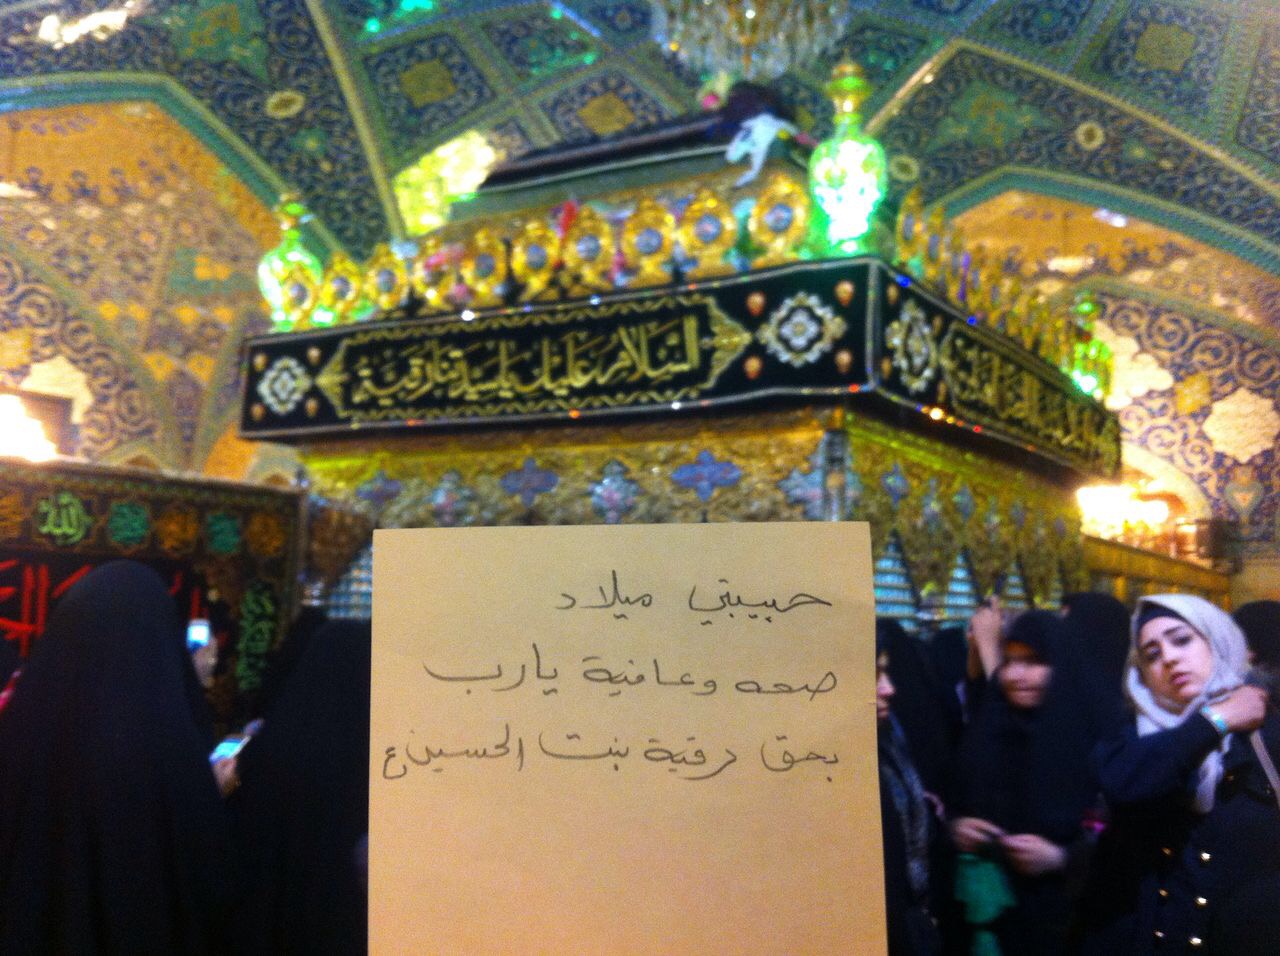 السلام عليك يا سيدتنا رقية
الله
حبيبتي ميلاد
صحه وعافية يارب
بحق رقية بنت الحسين ع